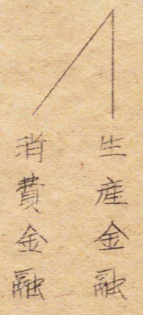 生産金融
消費金融